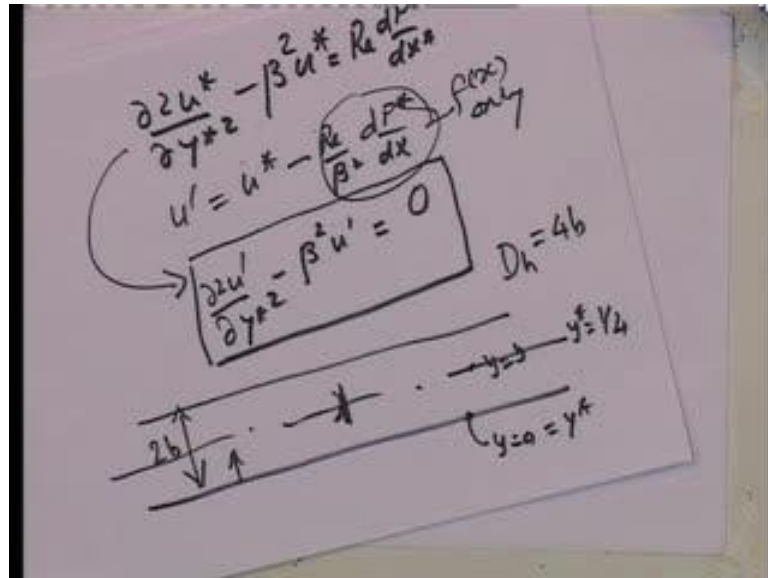 ∂2u*/∂y*2 - β²u* = Re dP*/dx*
u' = u* - Re/β² dP*/dx f(x) only
∂2u'/∂y*2 - β²u' = 0
Dh = 4b
y*= 1/4
2b
y=0 = y*